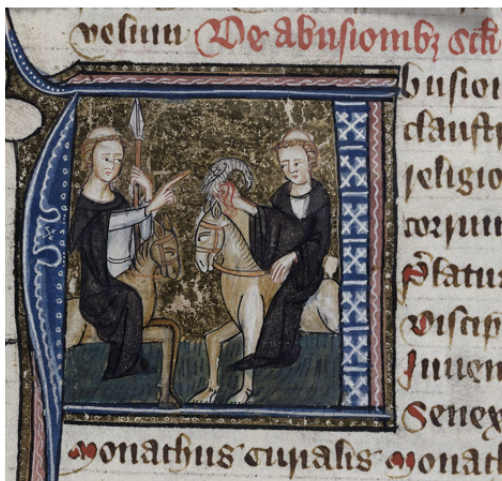 velum De abusionibꝫ
busion
claustr
religio
corrum
p̄latu
Discip
Iuuen
Senex
Monachus curialis Monach